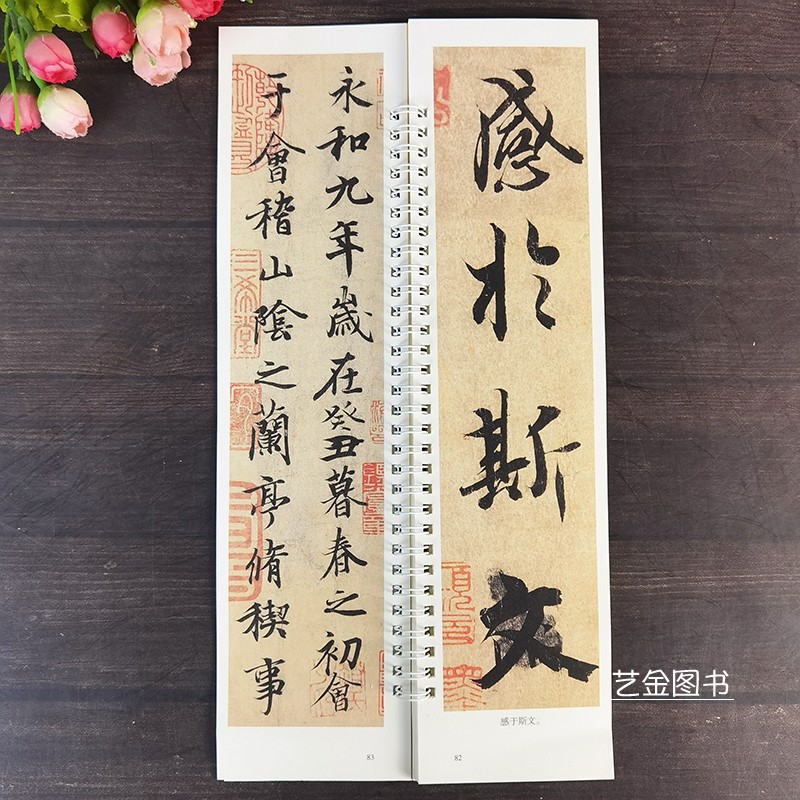 感於斯文
感于斯文。
82
永和九年歲在癸丑暮春之初會
于會稽山陰之蘭亭脩稧事
三希堂
83
艺金图书